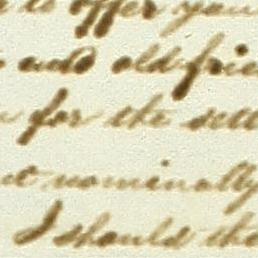 to offer you
and old frie
for the sett
nominally
I should the